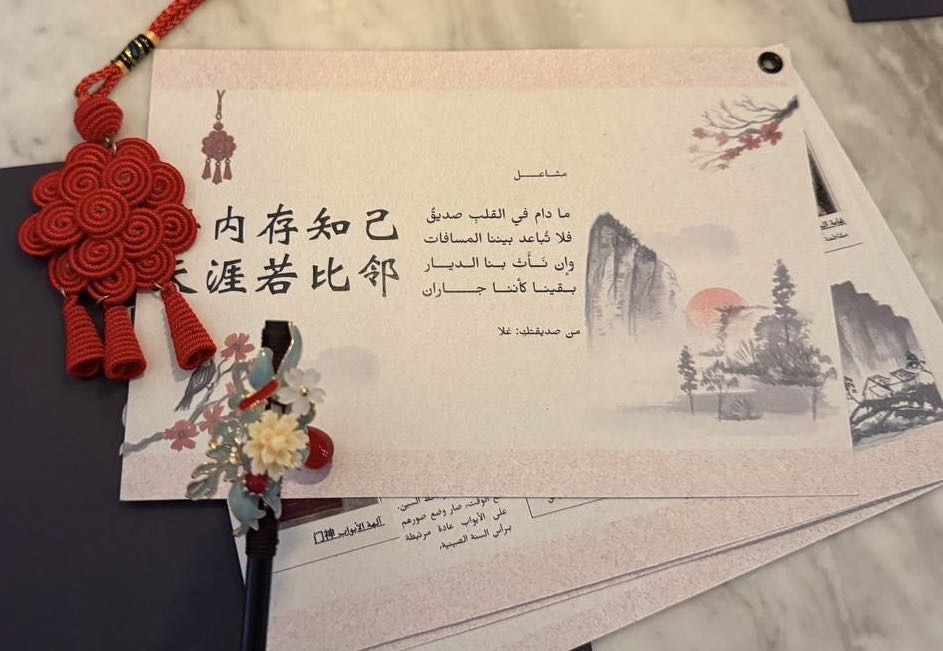 内存知己
涯若比邻
مشاعــل
ما دام في القلبِ صديقٌ
فلا تُباعد بيننا المسافات
وإن نَــأَتْ بنا الديــار
بقينا كأننا جــــاران
من صديقتكِ: غلا
مقاطعة
الوقت، صار وضع صورهم
على الأبواب عادة مرتبطة
برأس السنة الصينية.
آلهة الأبواب 神